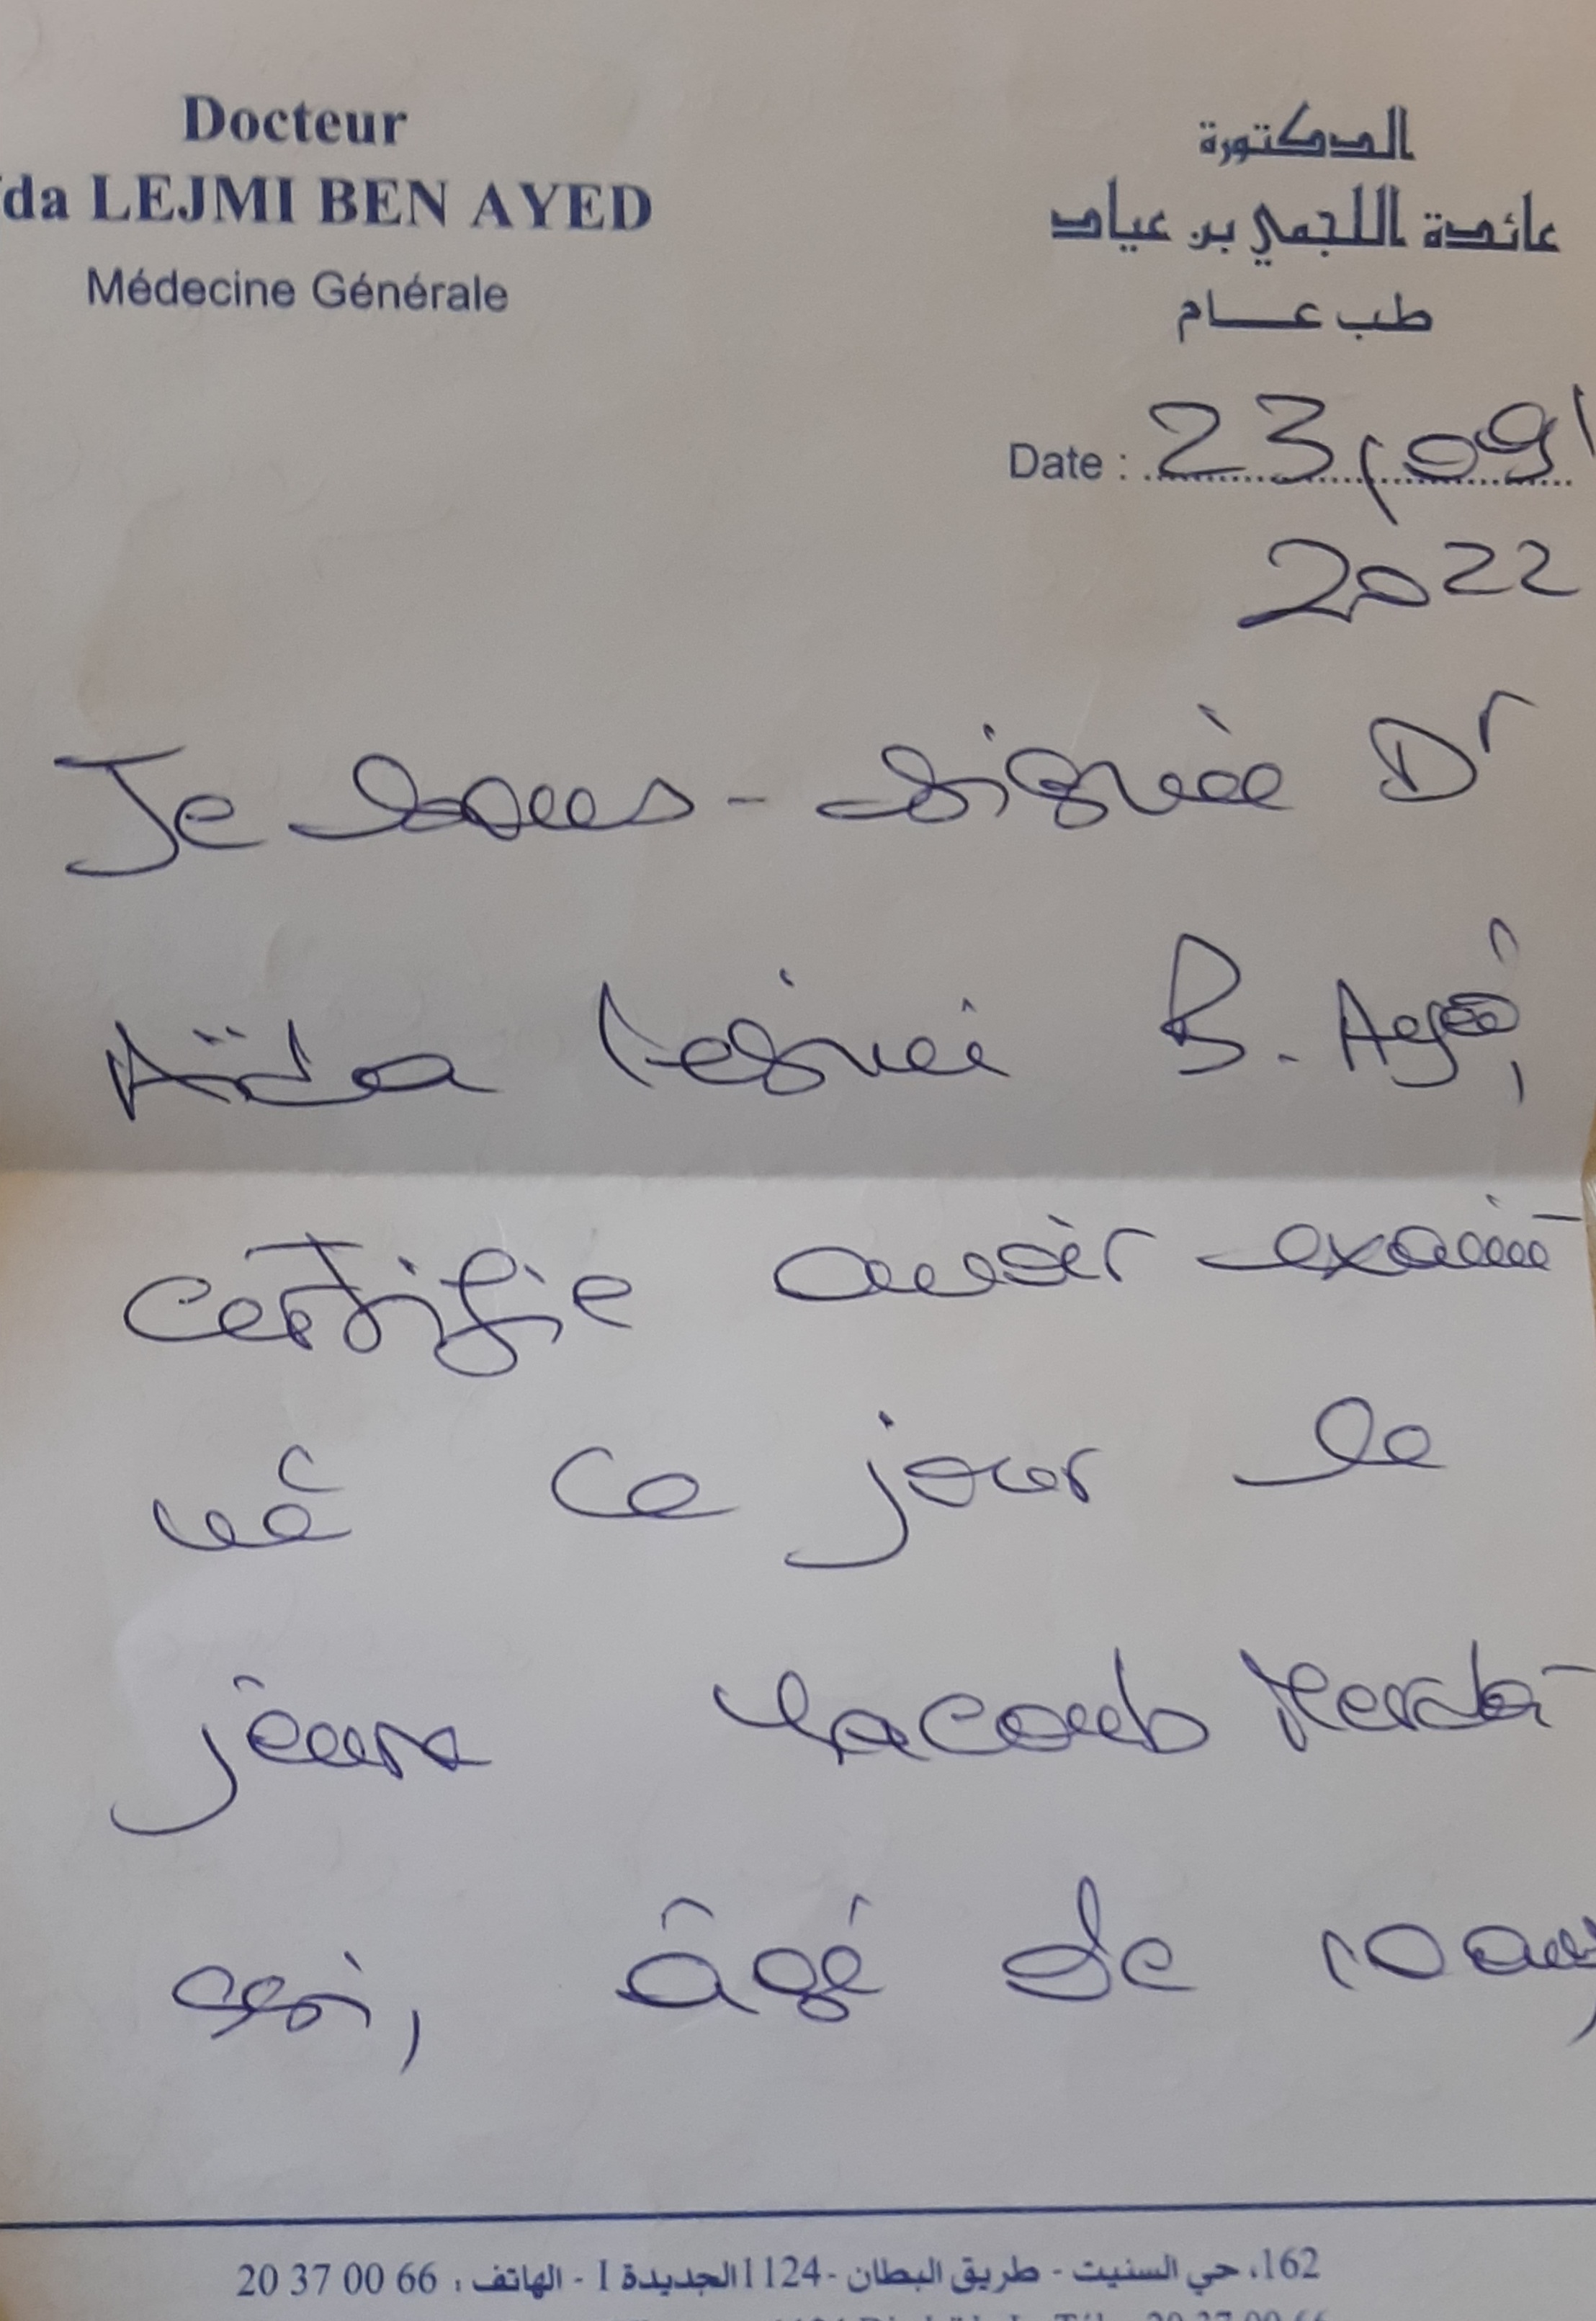 Docteur
ïda LEJMI BEN AYED
Médecine Générale
الدكتورة
عائدة اللجمي بن عياد
طب عـــام
Date : 23/09/
2022
Je sous-signée Dr
Aïda Lejmi B. Ayed,
certifie avoir exami-
né ce jour le
jeune Yacoub Merda-
ssi, âgé de 10 ans,
162، حي السنيت - طريق البطان -1124الجديدة I - الهاتف : 20 37 00 66